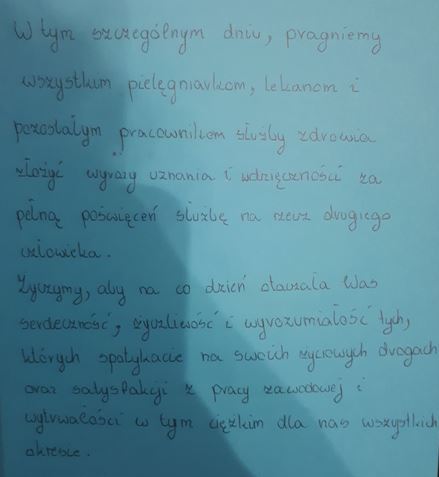 W tym szczególnym dniu, pragniemy
wszystkim pielęgniarkom, lekarzom i
pozostałym pracownikom służby zdrowia
złożyć wyrazy uznania i wdzięczności za
pełną poświęceń służbę na rzecz drugiego
człowieka.
Życzymy, aby na co dzień otaczała Was
serdeczność, życzliwość i wyrozumiałość tych,
których spotykacie na swoich życiowych drogach
oraz satysfakcji z pracy zawodowej i
wytrwałości w tym ciężkim dla nas wszystkich
okresie.